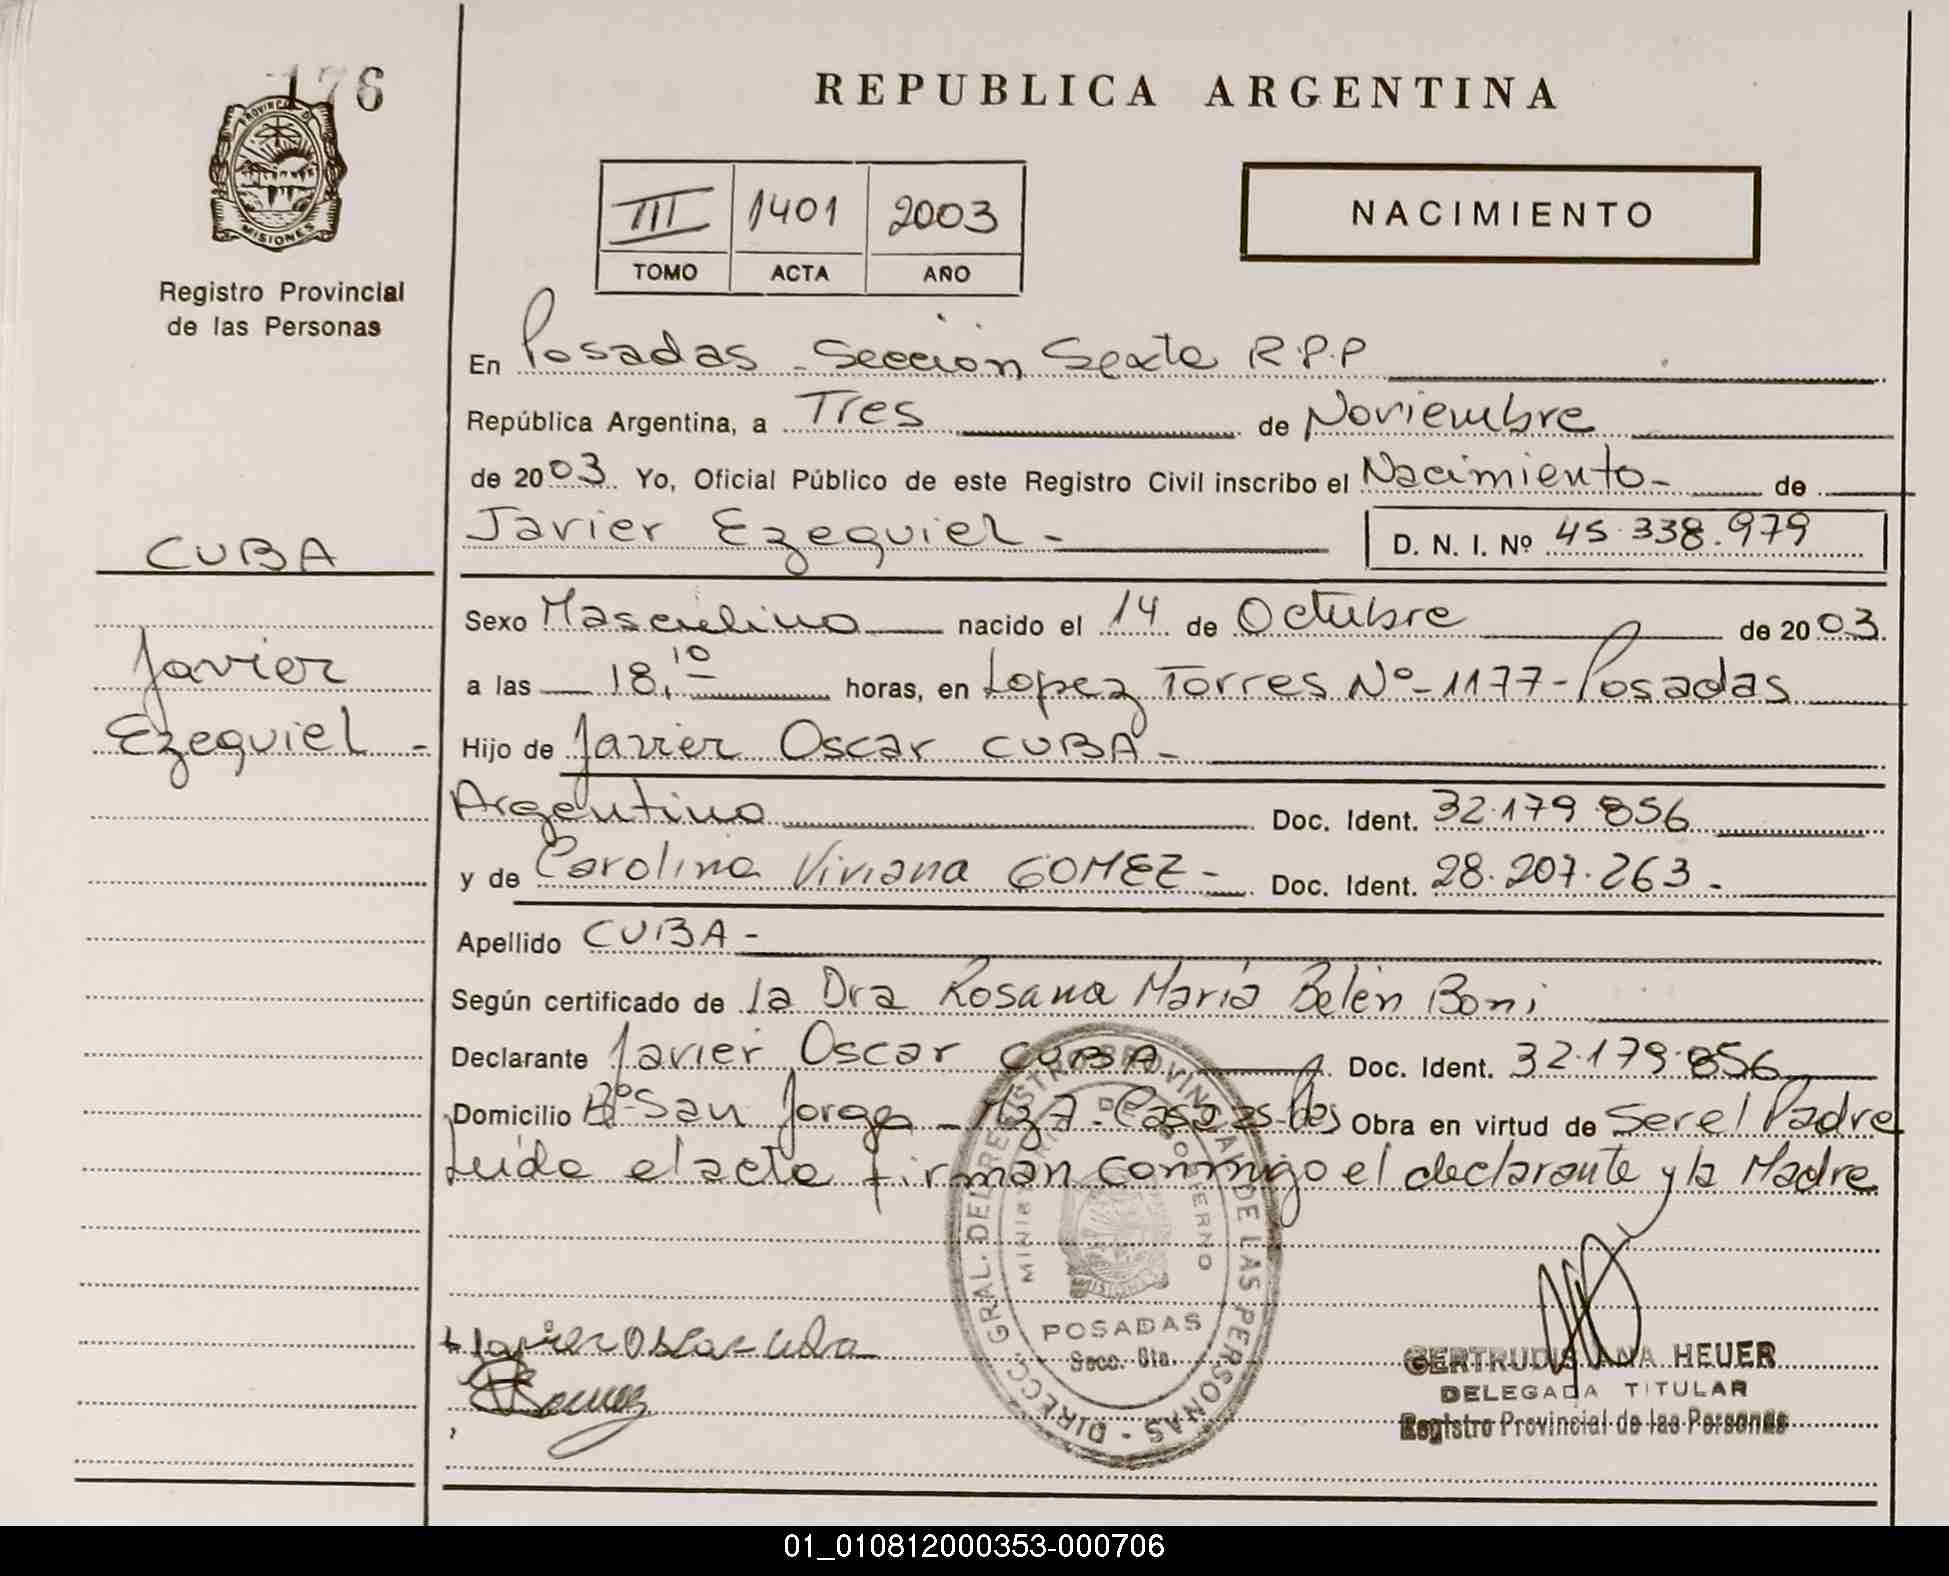 176
PROVINCIA DE
MISIONES
Registro Provincial
de las Personas
REPUBLICA ARGENTINA
III 1401 2003
TOMO ACTA AÑO
NACIMIENTO
En Posadas - Sección Sexta R.P.P
República Argentina, a Tres de Noviembre
de 2003. Yo, Oficial Público de este Registro Civil inscribo el Nacimiento- de
Javier Ezequiel - D. N. I. Nº 45.338.979
CUBA
Javier
Ezequiel -
Sexo Masculino nacido el 14 de Octubre de 2003.
a las 18,10 horas, en Lopez Torres Nº-1177-Posadas
Hijo de Javier Oscar CUBA-
Argentino Doc. Ident. 32.179.856
y de Carolina Viviana GOMEZ- Doc. Ident. 28.207.263-
Apellido CUBA-
Según certificado de la Dra Rosana María Belén Boni
Declarante Javier Oscar CUBA Doc. Ident. 32.179.856
Domicilio Bº San Jorge - Mz 7 - Casa Obra en virtud de Ser el Padre
Leida el acta firman conmigo el declarante y la Madre
DIRECC. GRAL. DEL REGISTRO PROVINCIAL DE LAS PERSONAS -
MINISTERIO DE GOBIERNO
POSADAS
Secc. 6ta.
Javier Oscar Cuba
Gomez
GERTRUDIS ANA HEUER
DELEGADA TITULAR
Registro Provincial de las Personas
01_010812000353-000706